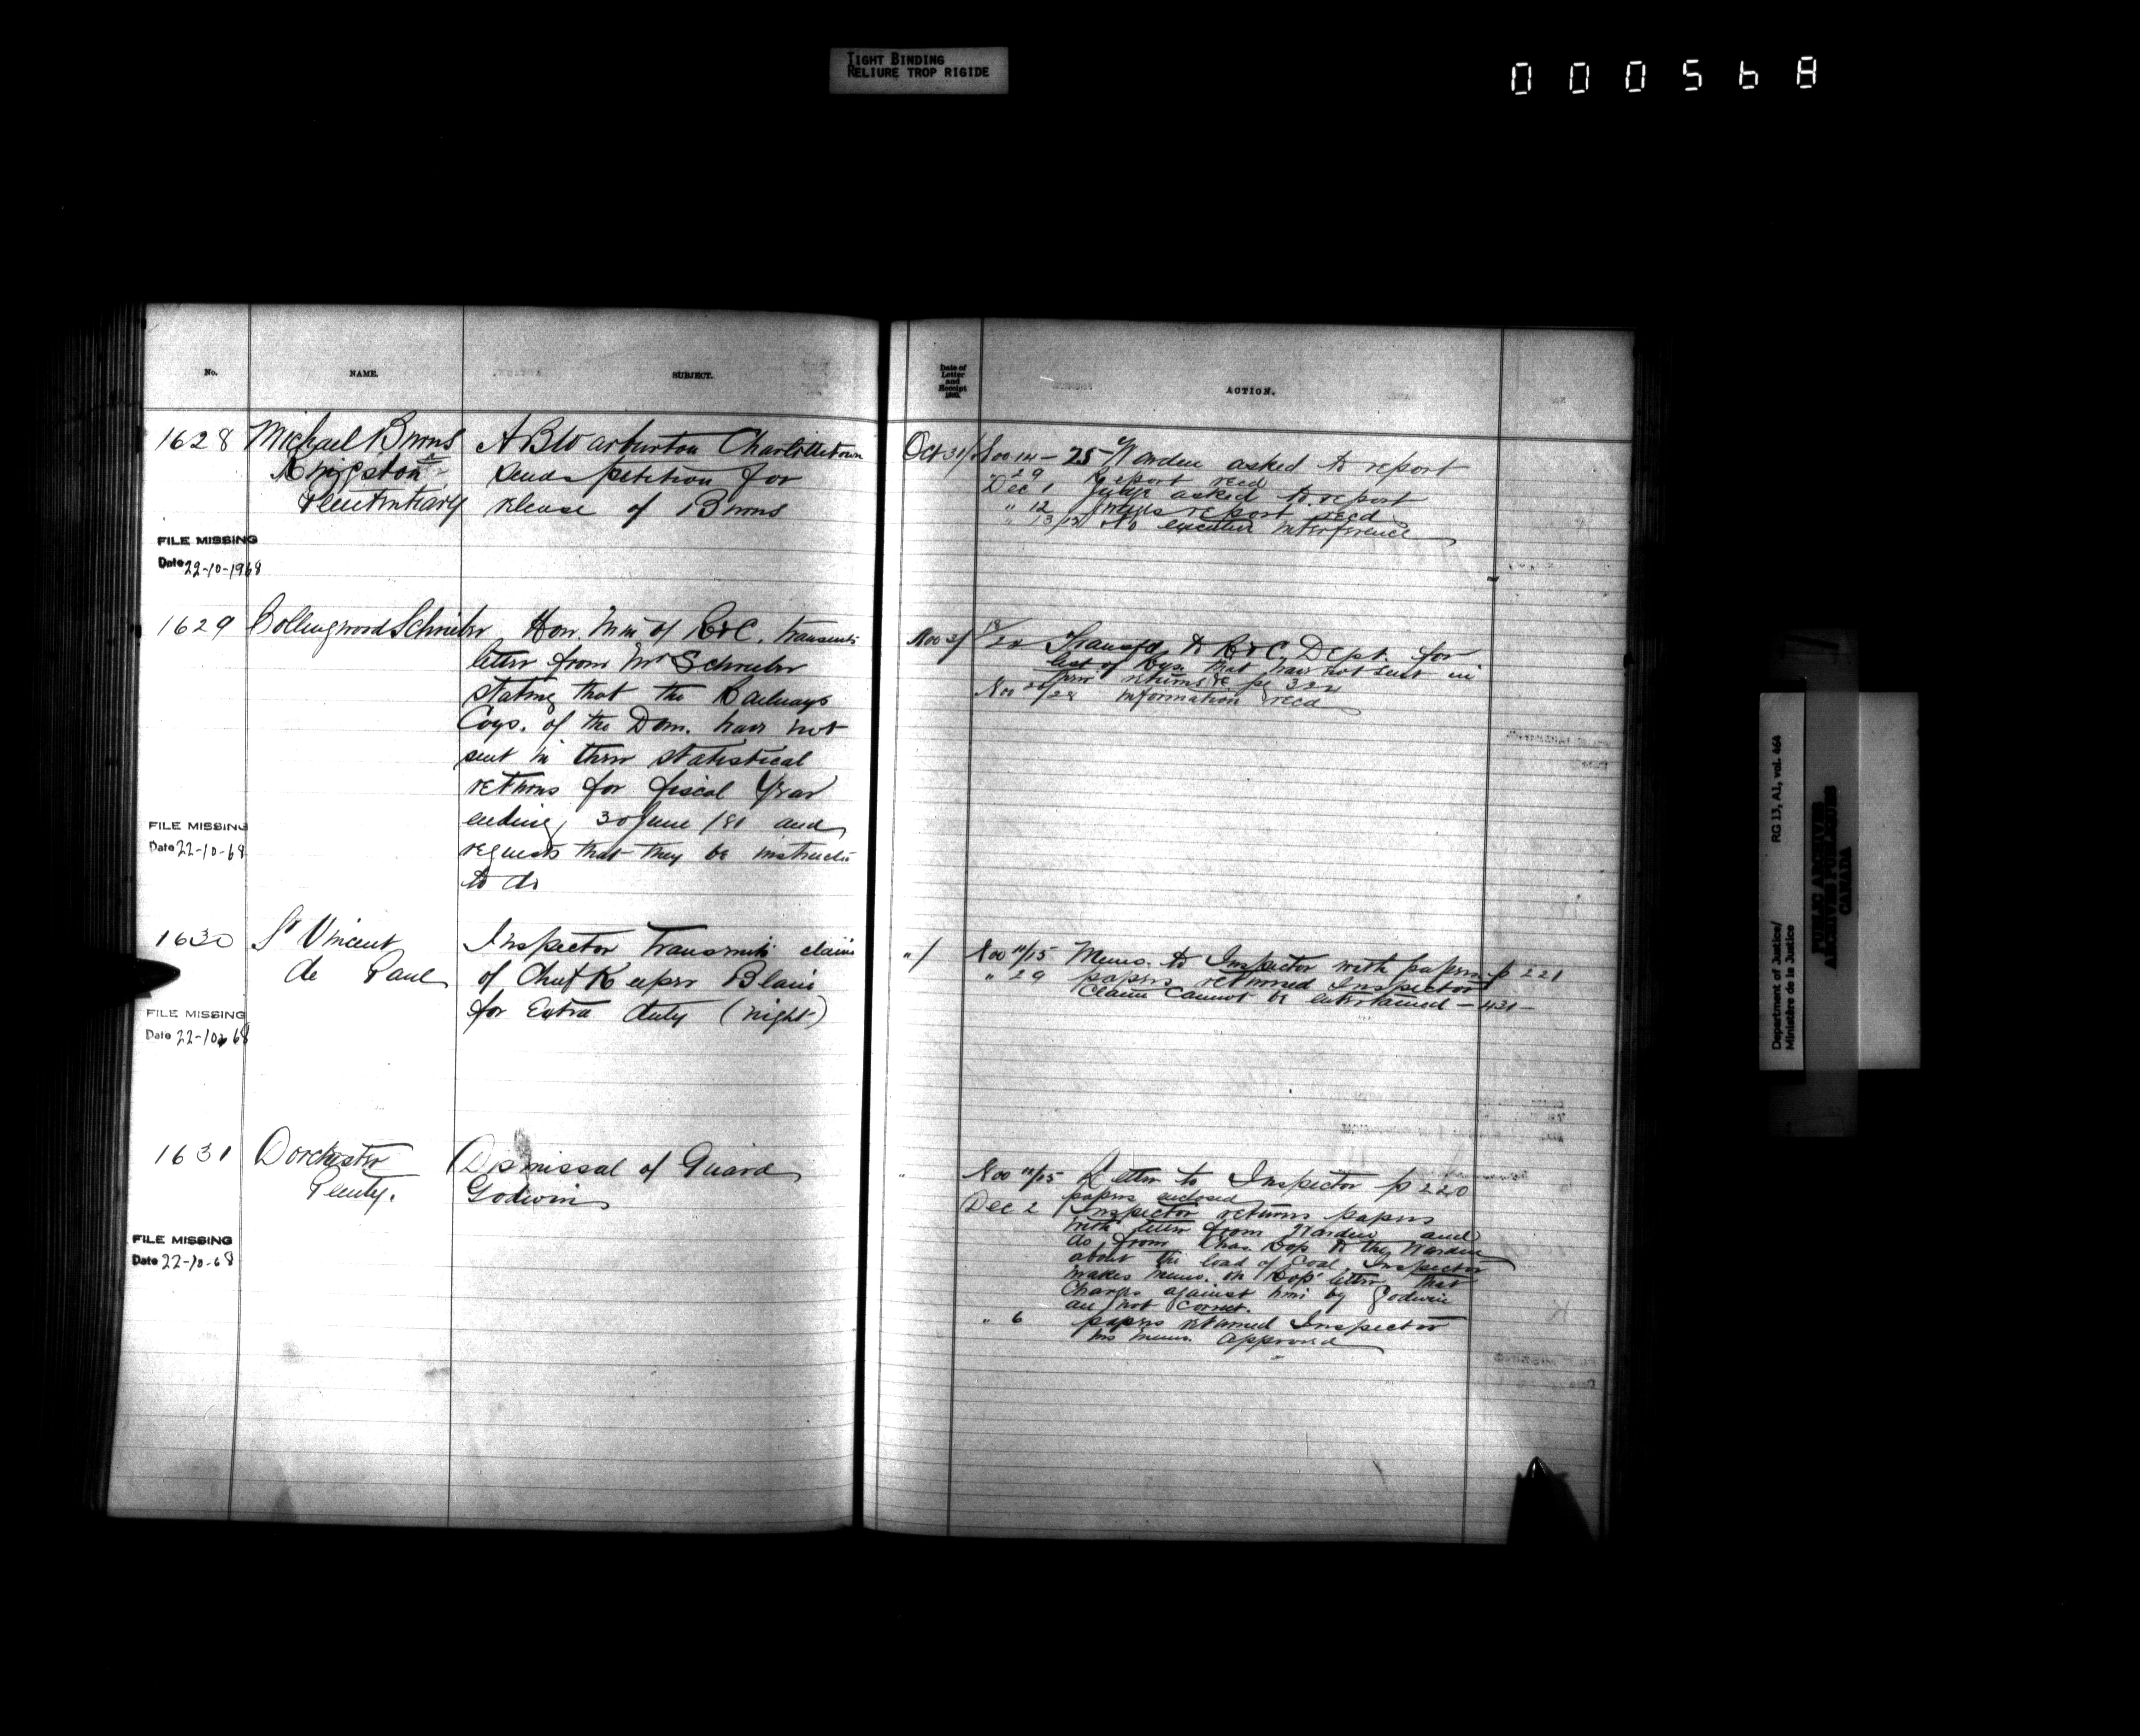 TIGHT BINDING
RELIURE TROP RIGIDE
000568
No.
NAME.
SUBJECT.
1628 Michael Burns
Kingston
Penitentiary
A B Warburton Charlottetown
sends petition for
release of Burns
FILE MISSING
Date 22-10-1968
1629 Collingwood Schreiber
Hon. Min of R&C. transmits
letter from Mr Schreiber
stating that the Railways
Coys. of the Dom. have not
sent in their statistical
returns for fiscal year
ending 30 June /81 and
requests that they be instructed
to do
FILE MISSING
Date 22-10-68
1630 St Vincent
de Paul
Inspector transmits claim
of Chief Keeper Blain
for Extra duty (night)
FILE MISSING
Date 22-10-68
1631 Dorchester
Penty.
Dismissal of Guard
Godwin
FILE MISSING
Date 22-10-68
Date of
Letter
and
Receipt
ACTION.
Oct 31/ Nov 14 - 25 Warden asked to report
" 29 Report recd
Dec 1 Judge asked to report
" 12 Judges report recd
" 13/13 No executive interference
Nov 2/ 18/20 Transfd to R&C Dept. for
list of Rys. that have not sent in
their returns &c pe 322
Nov 26/28 information recd
" / Nov 11/15 Memo. to Inspector with papers p 221
" 29 papers returned Inspector
claim cannot be entertained - 431 -
" Nov 11/15 Letter to Inspector p 220
papers enclosed
Dec 2 Inspector returns papers
with letter from Warden and
do from Chas. to the Warden
about the load of Coal. Inspector
makes memo. on letter that
Charges against him by Godwin
are not correct.
" 6 papers returned Inspector
his memo. approved
Department of Justice/
Ministère de la Justice
RG 13, A1, vol. 464
PUBLIC ARCHIVES
ARCHIVES PUBLIQUES
CANADA